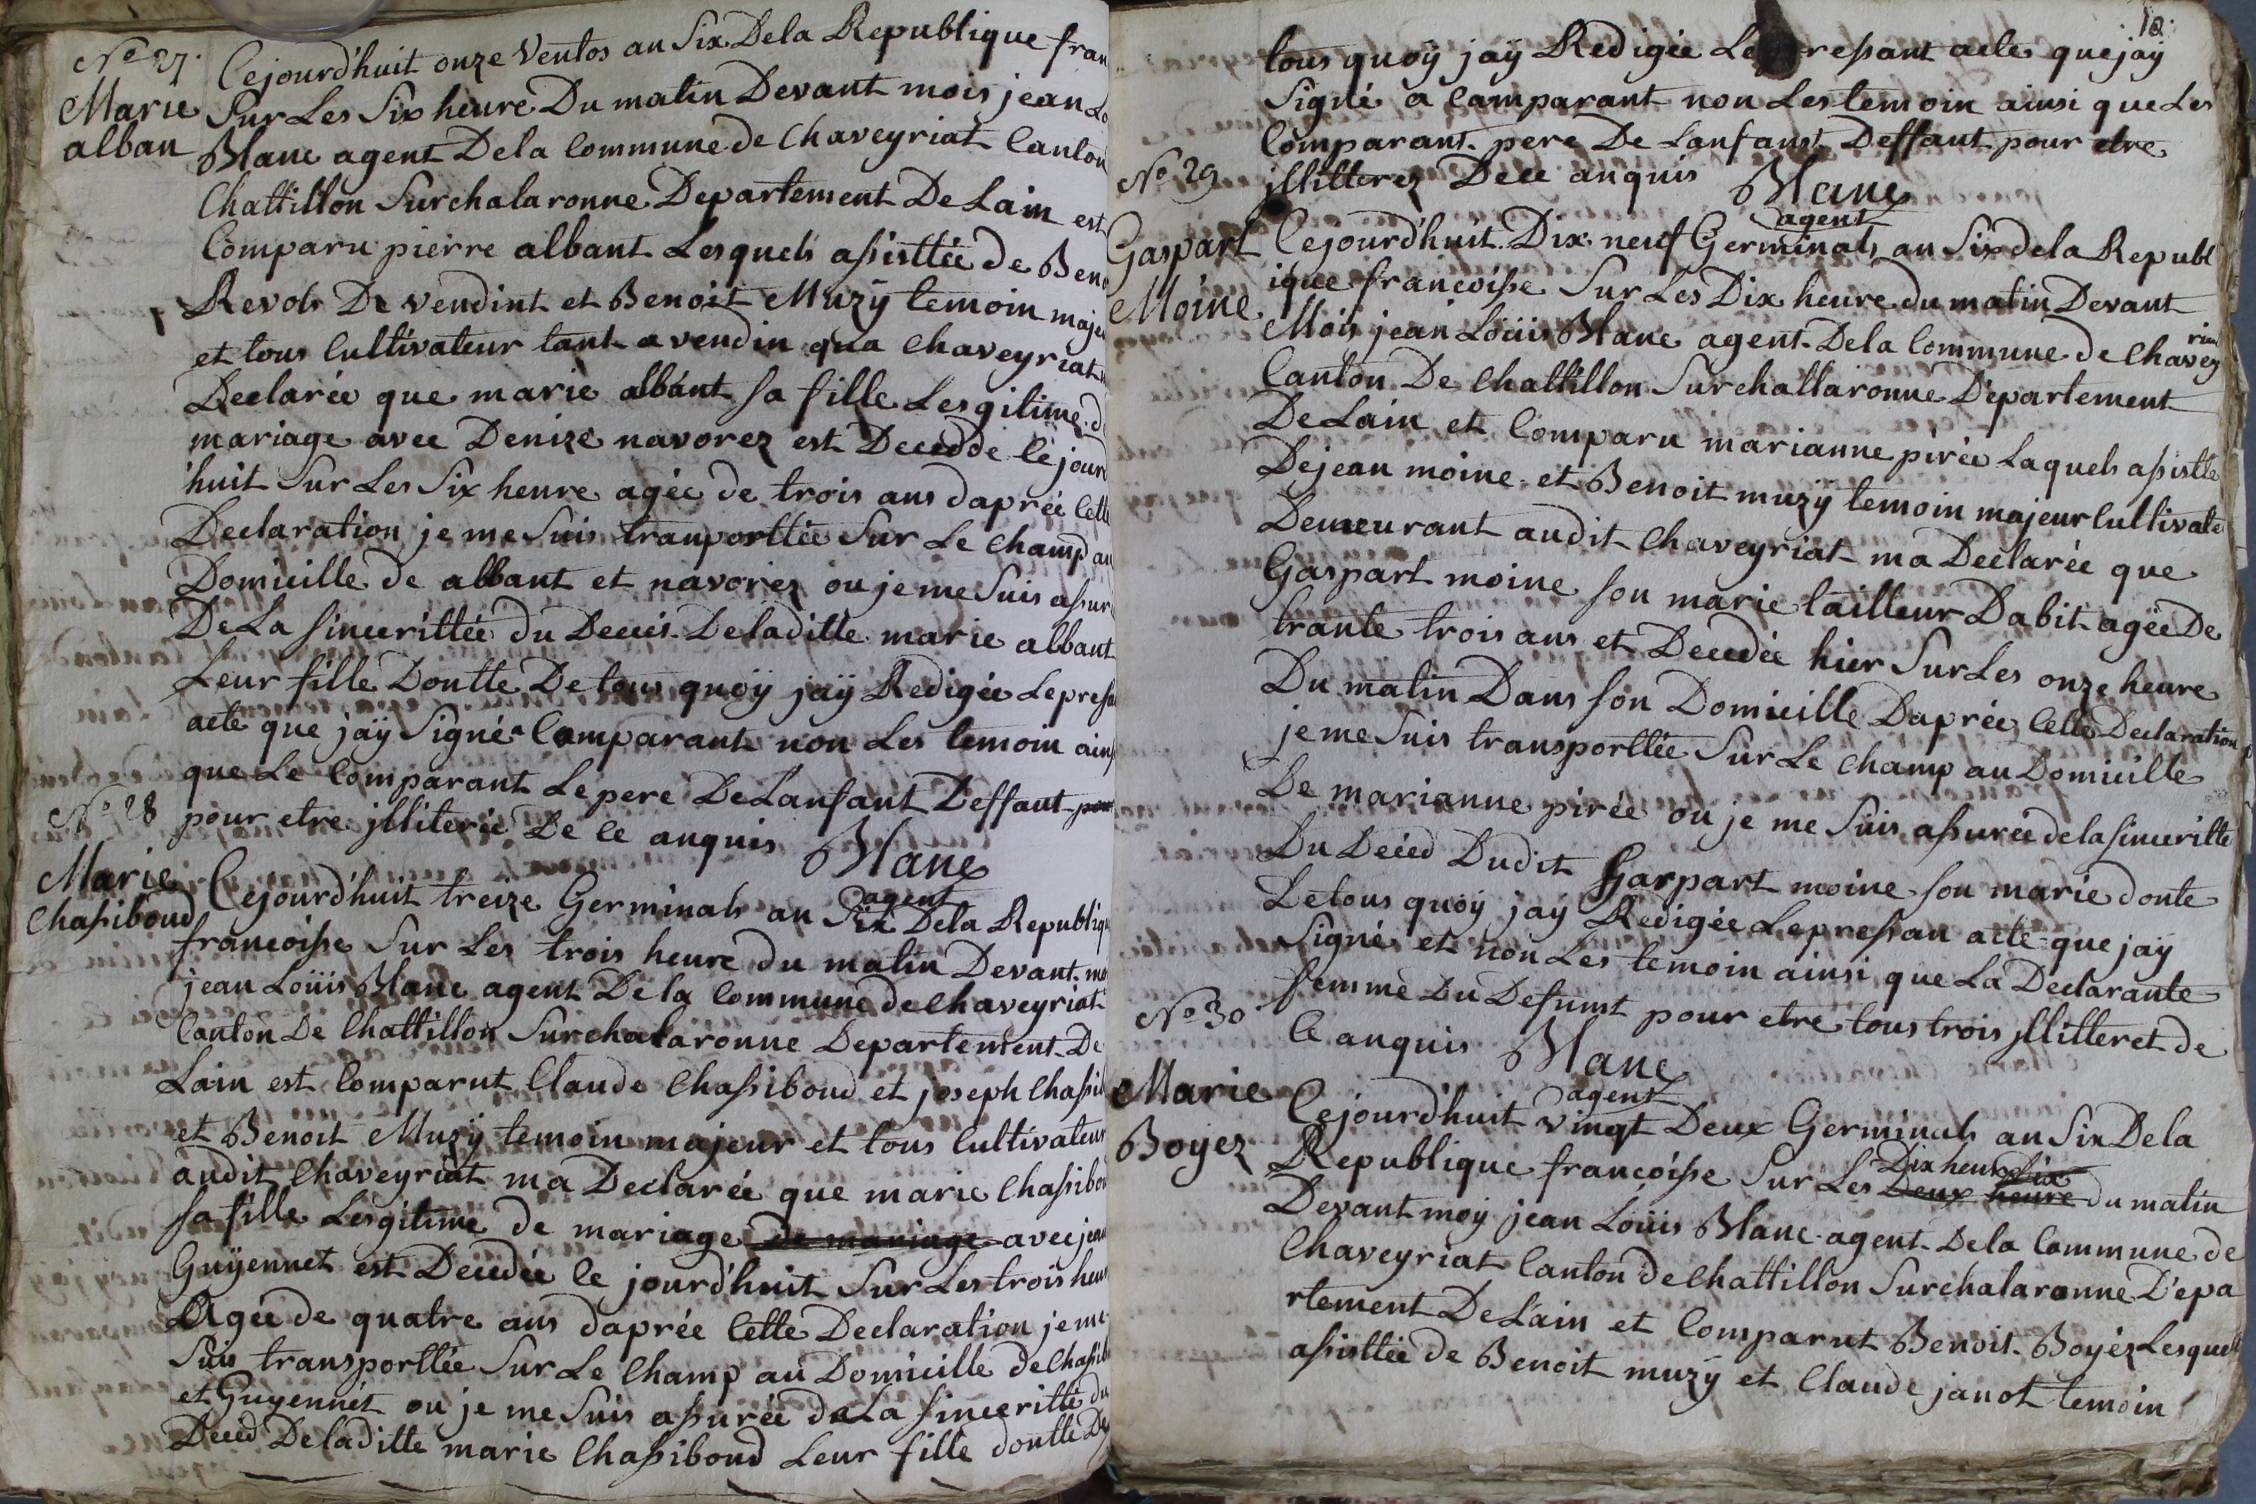 No 27.
Marie
alban
Cejourd'huit onze Ventos au Six Dela Republique fran
Sur Les Six heure Du matin Devant mois jean Lo
Blanc agent Dela Commune de Chaveyriat Canton
Chattillon Surchalaronne Departement De Lain est
Comparu pierre albant Lesquels assisttée de Beno
Revols De vendint et Benoit Muzÿ temoin maje
et tous Cultivateur tant a vendin qua Chaveyriat
Declarée que marie albant sa fille Lesgitime d
mariage avec Denize navorez est Decedde Cejourd
'huit Sur Les Six heure agée de trois ans daprée Cette
Declaration je me Suis tranporttée Sur Le Champ au
Domicille de albant et navorez ou je me Suis assur
De La Sincerittée du Deces Deladitte marie albant
Leur fille Dontte De tous quoÿ jaÿ Redigée Le pressa
acte que jaÿ Signé a Comparant non Les temoin ains
que Le Comparant Le pere De Lanfant Deffaut pour
pour etre jlliterée De Ce anquis Blanc
agent
No 28
Marie
Chassiboud
Cejourd'huit treize Germinals au Six Dela Republiq
francoisse Sur Les trois heure du matin Devant mo
jean Loüis Blanc agent De la Commune de Chaveyriat
Canton De Chattillon Surchalaronne Departement De
Lain est Comparut Claude Chassiboud et joseph Chassi
et Benoit Muzÿ temoin majeur et tous Cultivateur
audit Chaveyriat ma Declarée que marie Chassibou
sa fille Lesgitime de mariage de mariage avec jean
Guÿennet est Decedée Ce jourd'huit Sur Les trois heur
Agée de quatre ans daprée Cette Declaration je me
Suis transporttée Sur Le Champ au Domicille de Chassib
et Guyennet ou je me Suis assurée de La Sinceritté du
Deced Deladitte marie Chassiboud Leur fille dontte De
10.
tous quoÿ jaÿ Redigée Le pressant acte que jaÿ
Signé a Comparant non Les temoin ainsi que Les
Comparant pere De Lanfant Deffaut pour etre
jllitterez Dece anquis Blanc
agent
No 29
Gaspart
Moine
Cejourd'huit Dix neuf Germinals au Six de la Republ
ique francoisse Sur Les Dix heure du matin Devant
Mois jean Loüis Blanc agent Dela Commune de Chavey
riat
Canton De Chattillon Surchallaronne Departement
De Lain et Comparu marianne pirée Laquels assistte
De jean moine et Benoit muzÿ temoin majeur Cultivate
Demeurant audit Chaveyriat ma Declarée que
Gaspart moine son marie tailleur Dabit agée De
trante trois ans et Decedée hier Sur Les onze heure
Du matin Dans son Domicille Daprée Cette Declaration
je me Suis transporttée Sur Le Champ au Domicille
De marianne pirée ou je me Suis assurée de la Sinceritte
Du Deced Dudit Garpart moine son marie donte
De tous quoÿ jaÿ Redigée Le pressan acte que jaÿ
Signé et non Les temoin ainsi que La Declarante
femme Du Defunt pour etre tous trois jllitteret de
Ce anquis Blanc
agent
No 30
Marie
Boyez
Cejourd'huit vingt Deux Germinals au Six Dela
Republique francoisse Sur Les Deux heure du matin
Dix heur Dix
Devant moy jean Loüis Blanc agent Dela Commune de
Chaveyriat Canton de Chattillon Surchalaronne Depa
rtement De Lain et Comparut Benoit Boyéz Lesquel
assisttée de Benoit muzÿ et Claude janot temoin